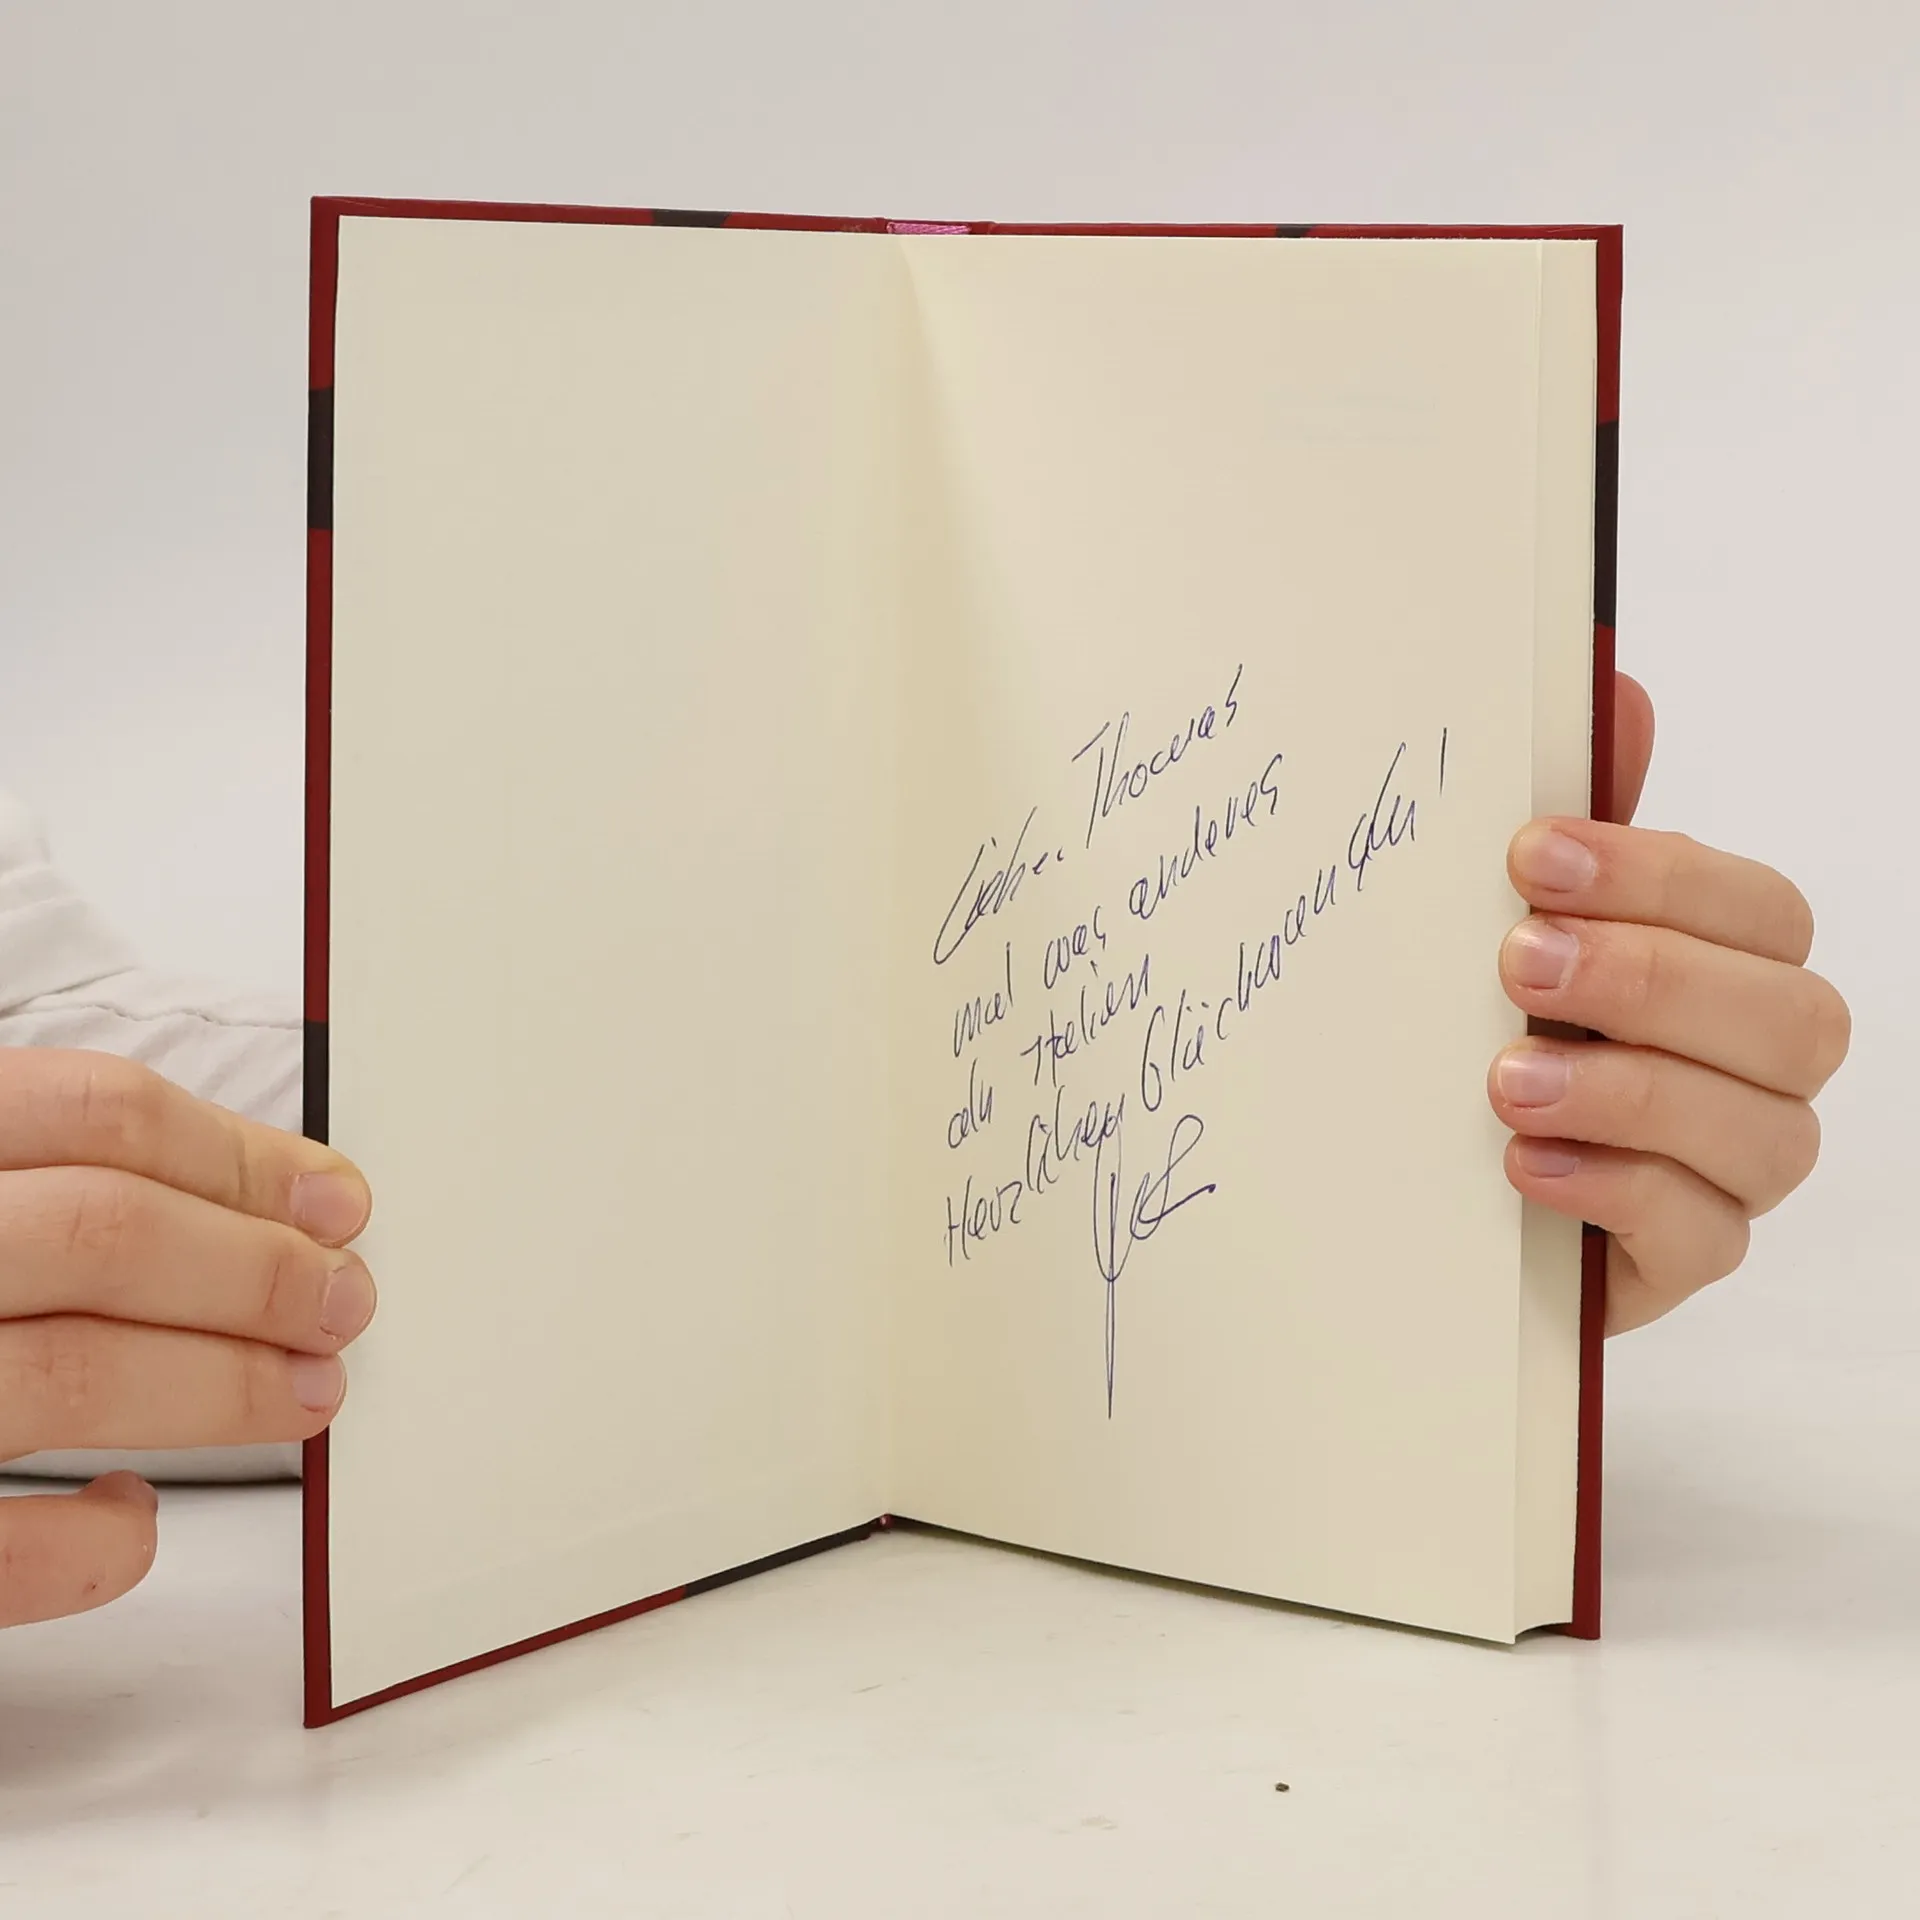 Lieber Thomas
mal was anderes
aus Italien
Herzlichen Glückwunsch!